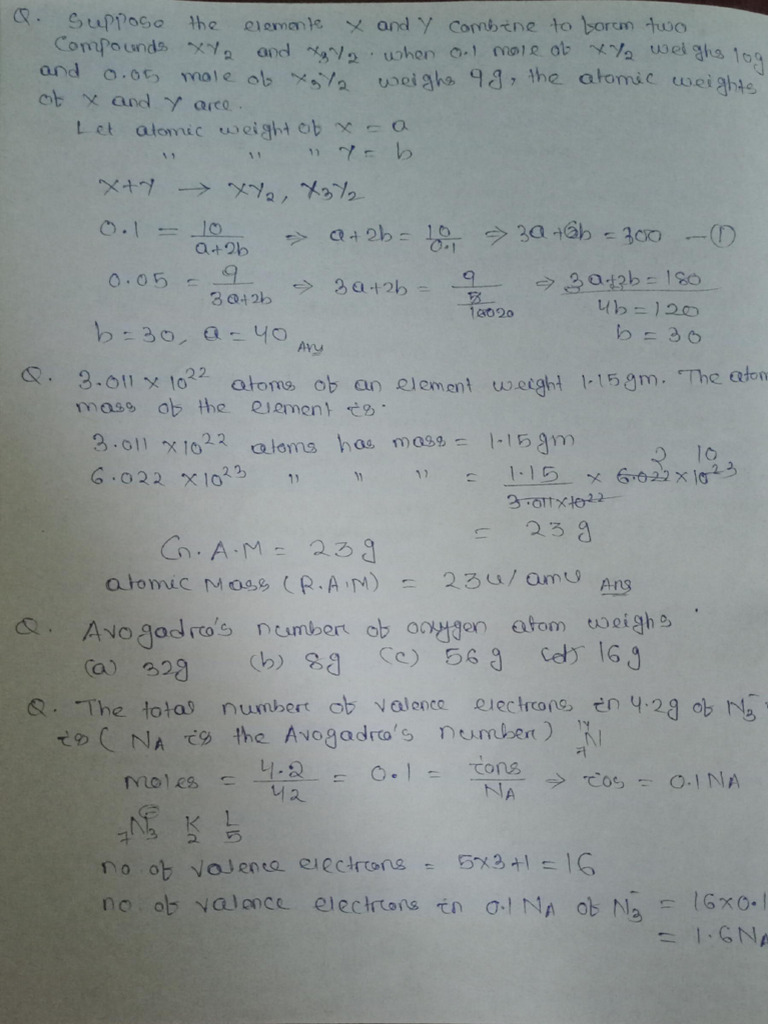 Q. Suppose the elements X and Y combine to form two
Compounds XY2 and X3Y2. when 0.1 mole of XY2 weighs 10g
and 0.05 mole of X3Y2 weighs 9g, the atomic weights
of X and Y are.
Let atomic weight of X = a
" " " Y = b
X+Y → XY2, X3Y2
0.1 = 10/(a+2b) ⇒ a+2b = 10/0.1 ⇒ 3a+6b = 300 —①
0.05 = 9/(3a+2b) ⇒ 3a+2b = 9/(5/10020) ⇒ 3a+2b = 180
4b = 120
b = 30, a = 40 Ans b = 30
Q. 3.011 × 10^22 atoms of an element weight 1.15gm. The atom
mass of the element is.
3.011 × 10^22 atoms has mass = 1.15gm
6.022 × 10^23 " " " = 1.15/(3.011×10^22) × 6.022 × 10^23 2 10
= 23 g
G.A.M = 23g
atomic Mass (R.A.M) = 23u/amu Ans
Q. Avogadro's number of oxygen atom weighs
(a) 32g (b) 8g (c) 56g (d) 16g
Q. The total number of valence electrons in 4.2g of N3-
is (NA is the Avogadro's number) 14 7 N
moles = 4.2/42 = 0.1 = ions/NA ⇒ ios = 0.1NA
7N3- K 2 L 5
no. of valence electrons = 5×3+1 = 16
no. of valance electrons in 0.1 NA of N3- = 16×0.1
= 1.6NA